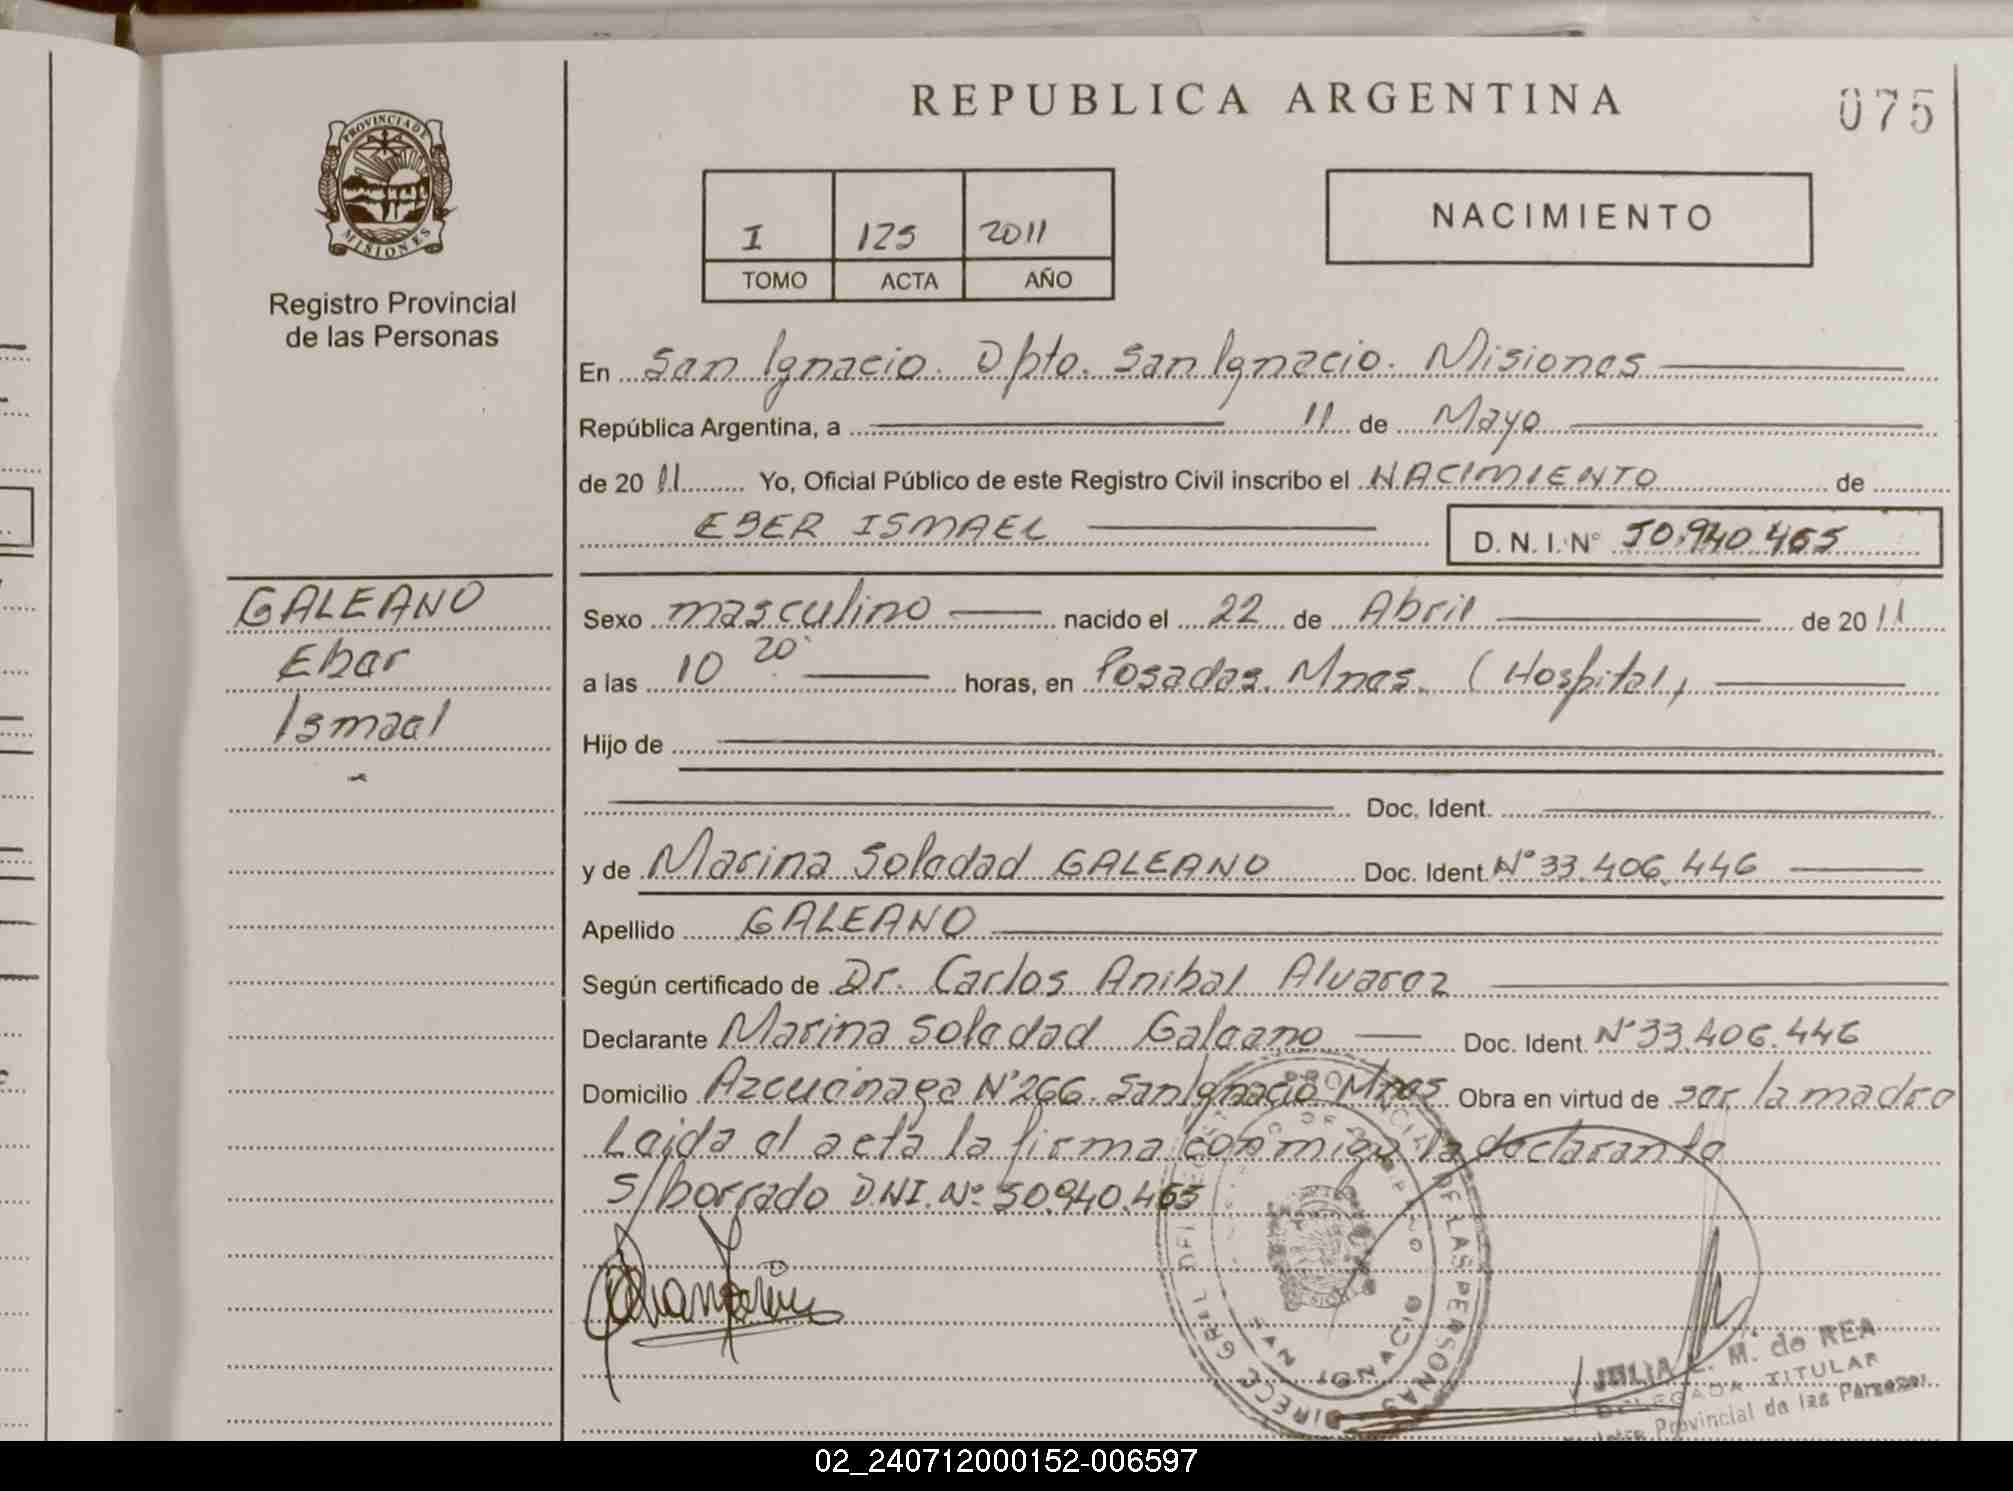 REPUBLICA ARGENTINA
075
PROVINCIA DE
MISIONES
Registro Provincial
de las Personas
I 125 2011
TOMO ACTA AÑO
NACIMIENTO
En San Ignacio. Dpto. San Ignacio. Misiones
República Argentina, a 11 de Mayo
de 2011 Yo, Oficial Público de este Registro Civil inscribo el NACIMIENTO de
EBER ISMAEL D. N. I. N° 50.940.465
GALEANO
Eber
Ismael
Sexo masculino nacido el 22 de Abril de 2011
a las 10 20 horas, en Posadas. Mnes. (Hospital)
Hijo de
Doc. Ident.
y de Marina Soledad GALEANO Doc. Ident. N° 33.406.446
Apellido GALEANO
Según certificado de Dr. Carlos Anibal Alvarez
Declarante Marina Soledad Galeano Doc. Ident. N° 33.406.446
Domicilio Azcuénaga N° 266. San Ignacio Mnes Obra en virtud de ser la madre
Leida el acta la firma conmigo la declarante
S/borrado D.NI. Nº 50.940.465
SAN IGNACIO
DE LAS PERSONAS
JULIA L. M. de REA
DELEGADA TITULAR
Provincial de las Personas
02_240712000152-006597